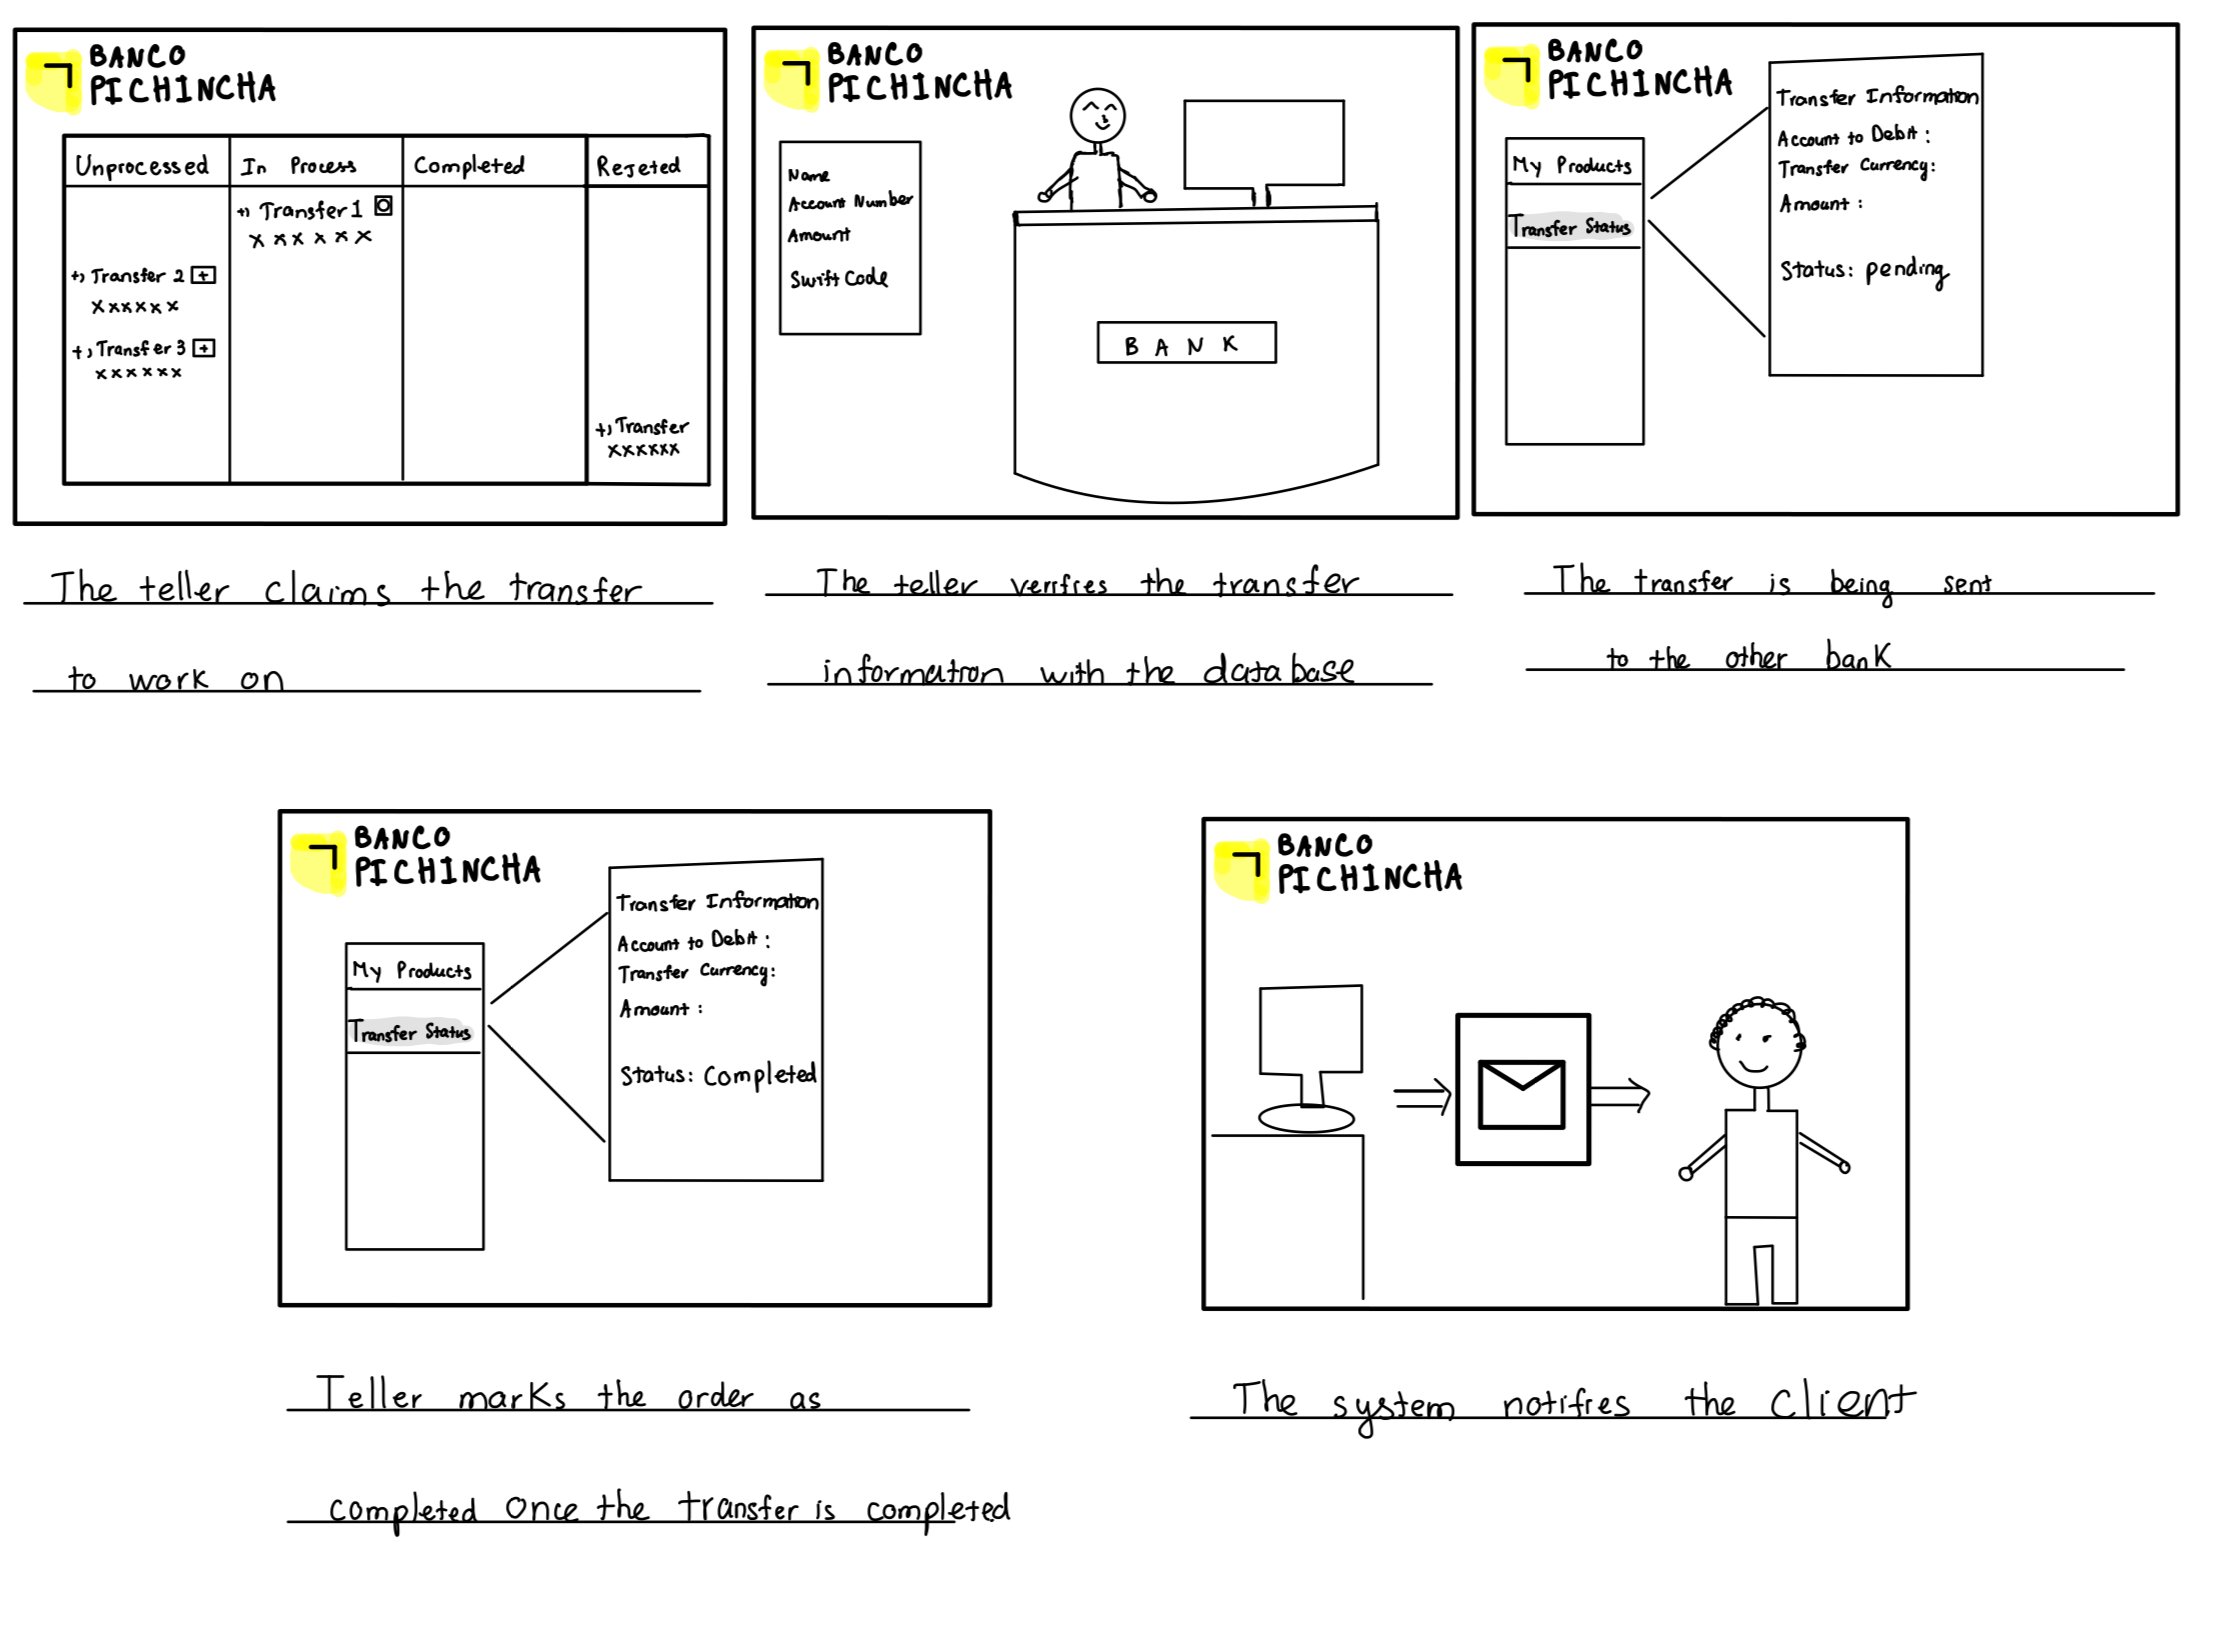 BANCO
PICHINCHA
Unprocessed
In Process
Completed
Rejeted
+) Transfer 1
x x x x x x
+) Transfer 2 +
x x x x x x
+) Transfer 3 +
x x x x x x
+) Transfer
x x x x x x
The teller claims the transfer
to work on
BANCO
PICHINCHA
Name
Account Number
Amount
Swift Code
BANK
The teller verifies the transfer
information with the database
BANCO
PICHINCHA
My Products
Transfer Status
Transfer Information
Account to Debit :
Transfer Currency:
Amount :
Status: pending
The transfer is being sent
to the other bank
BANCO
PICHINCHA
My Products
Transfer Status
Transfer Information
Account to Debit :
Transfer Currency:
Amount :
Status: Completed
Teller marks the order as
completed Once the transfer is completed
BANCO
PICHINCHA
The system notifies the client